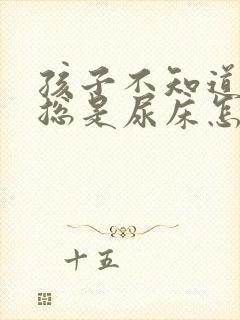 孩子不知道
总是尿床怎
十五